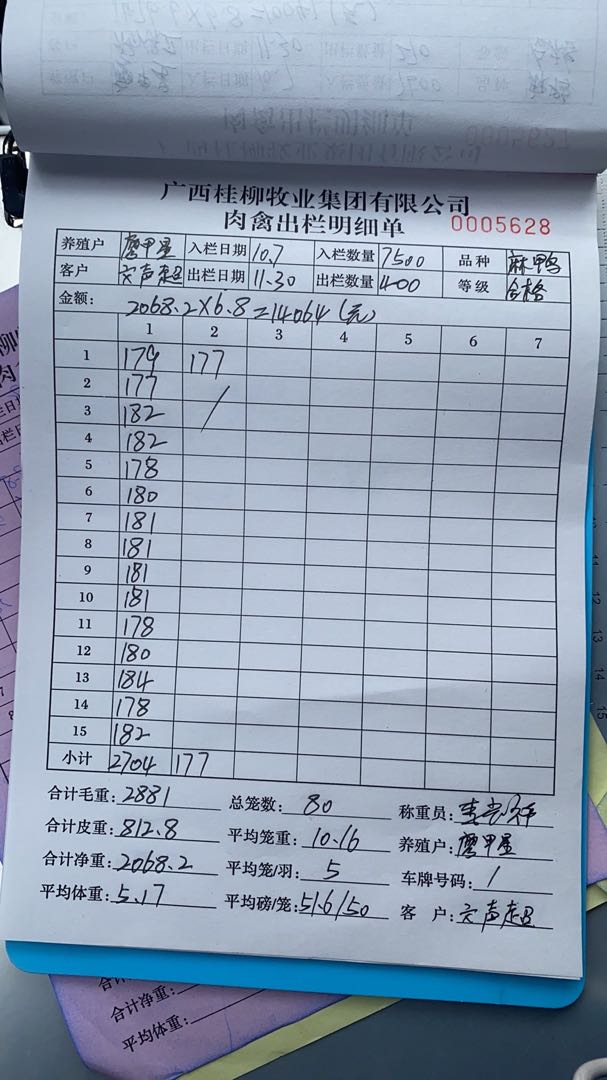 广西桂柳牧业集团有限公司
肉禽出栏明细单 0005628
养殖户 入栏日期 10.7 入栏数量 7500 品种 麻鸭
客户 出栏日期 11.30 出栏数量 400 等级 合格
金额: 2068.2×6.8=14064(元)
1 2 3 4 5 6 7
1 179 177
2 177 /
3 182
4 182
5 178
6 180
7 181
8 181
9 181
10 181
11 178
12 180
13 184
14 178
15 182
小计 2704 177
合计毛重: 2881 总笼数: 80 称重员:
合计皮重: 812.8 平均笼重: 10.16 养殖户:
合计净重: 2068.2 平均笼/羽: 5 车牌号码: /
平均体重: 5.17 平均磅/笼: 51.6/50 客 户:
合计净重:
平均体重: